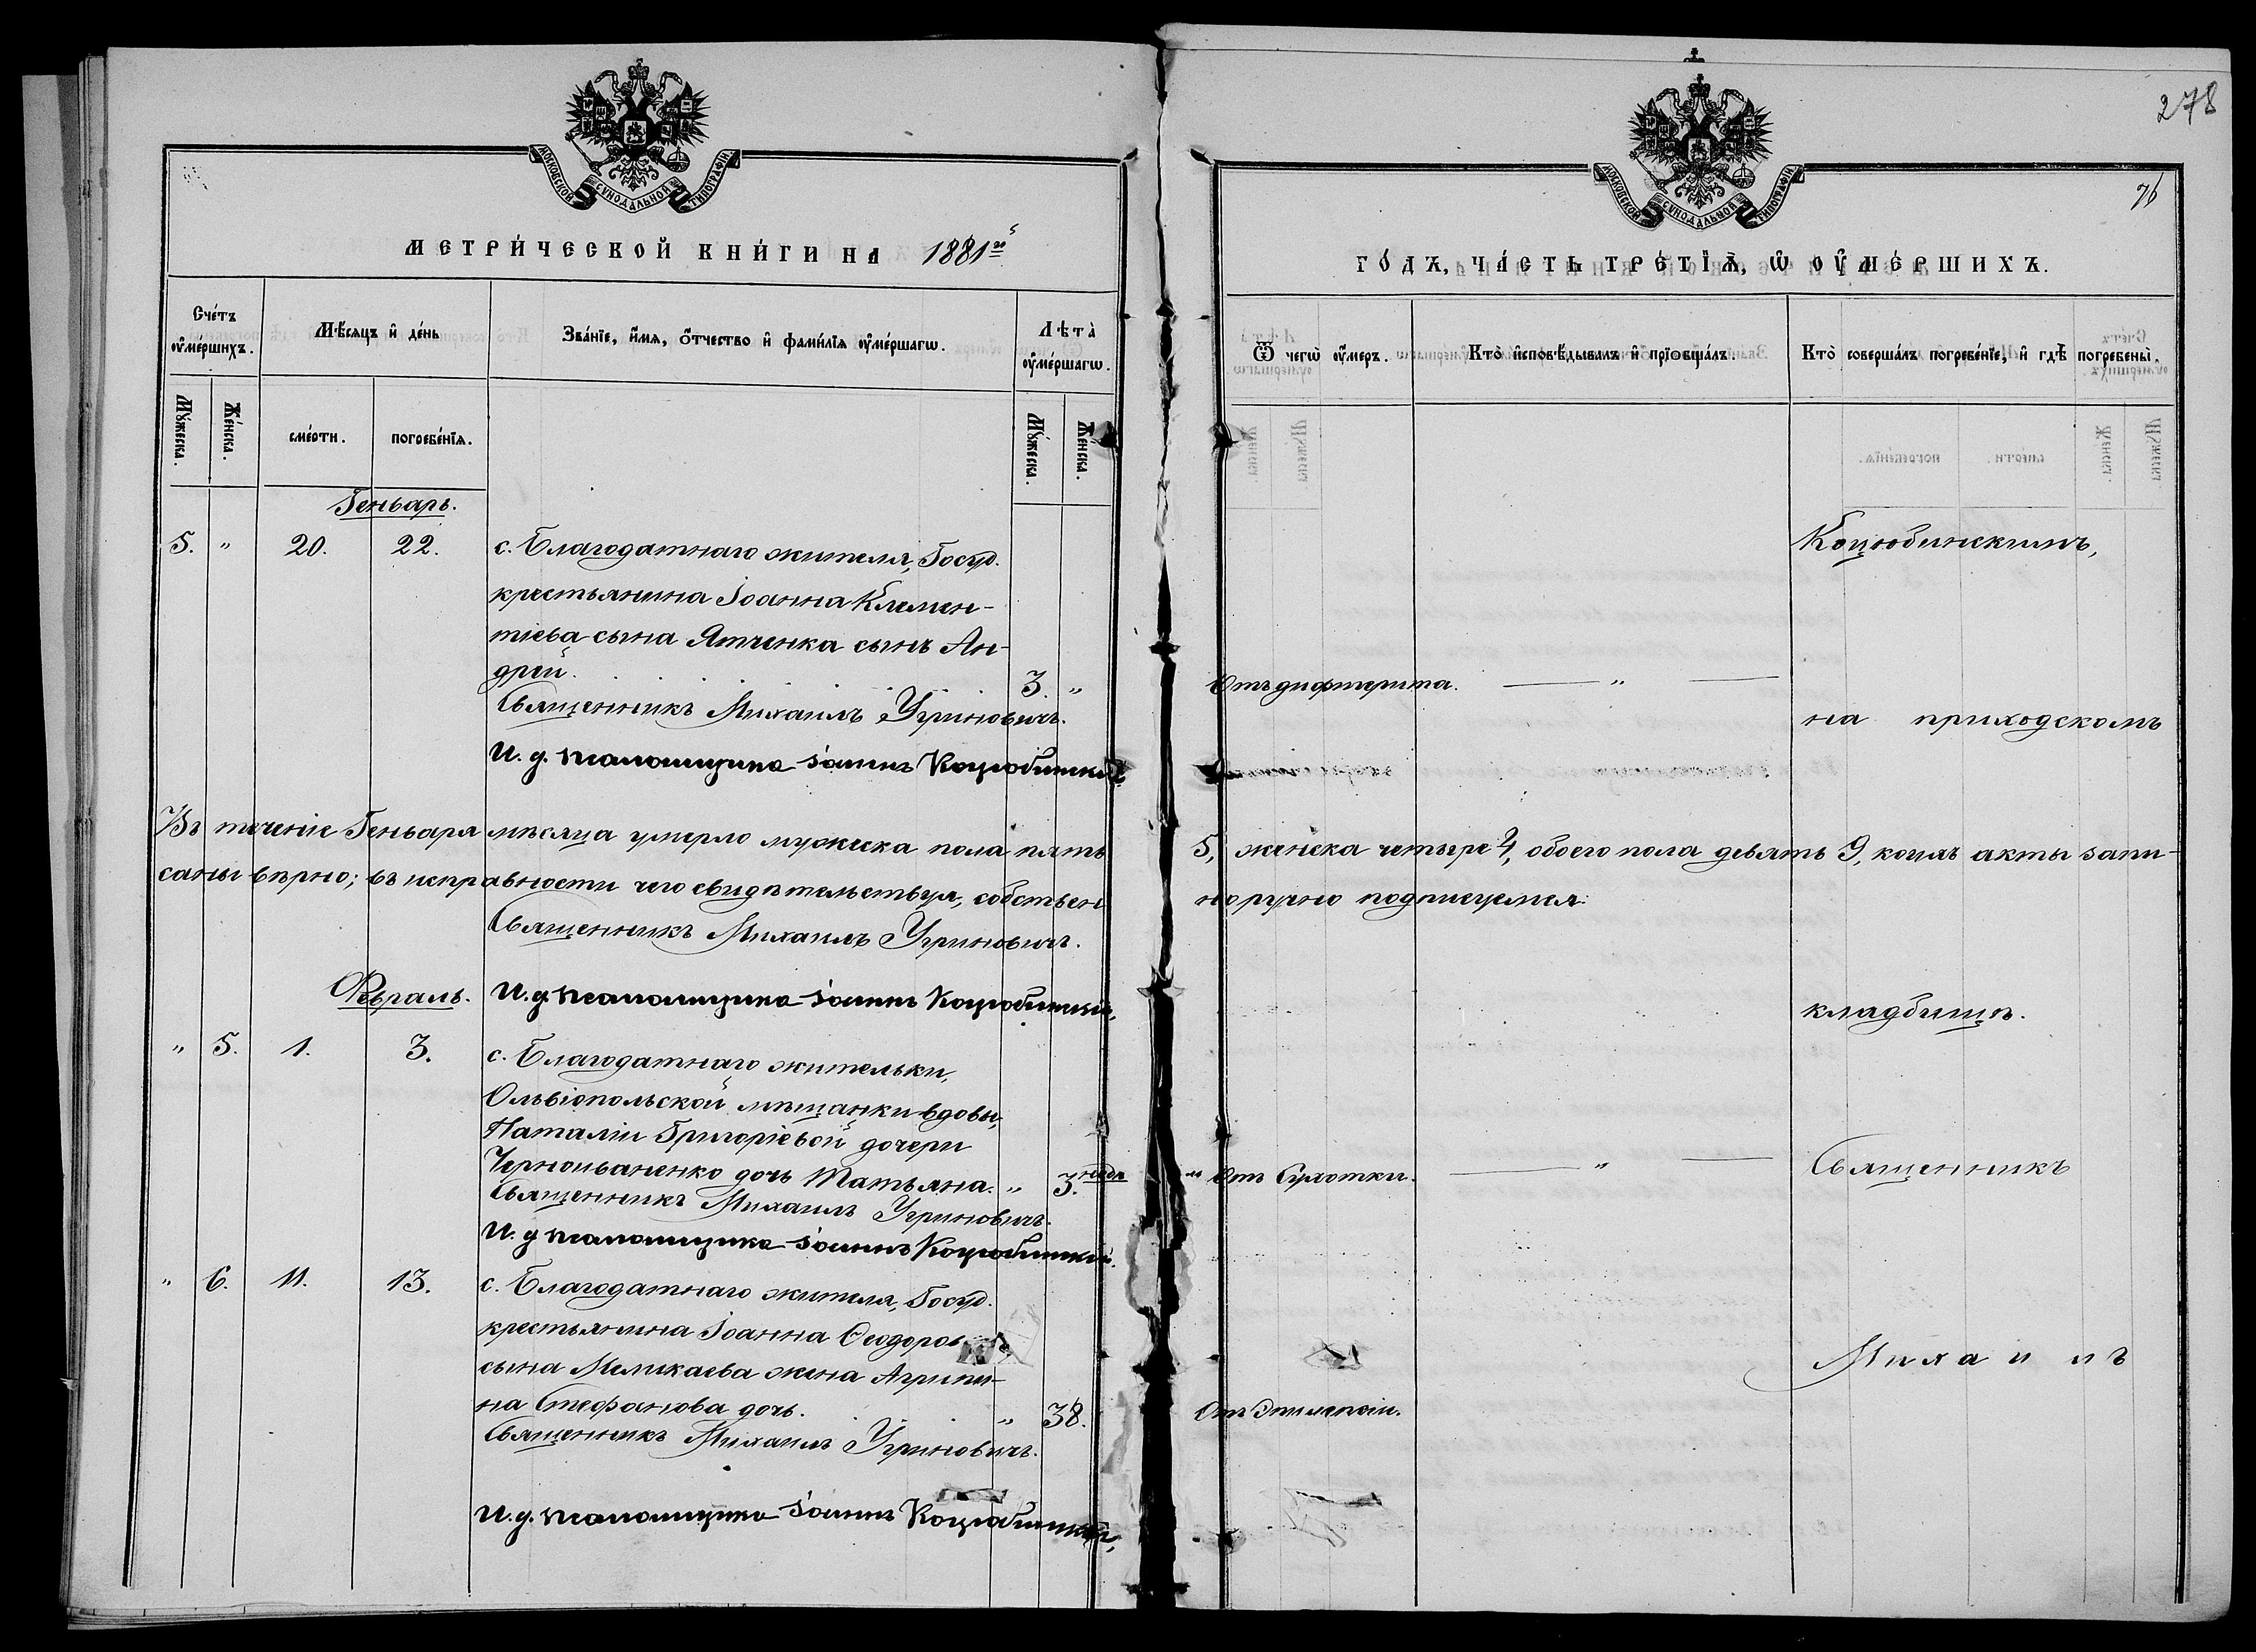 278
76
МОСКОВСКОЙ СѴНОДАЛЬНОЙ ТИПОГРАФІИ.
МЕТРИ́ЧЕСКОЙ КНИ́ГИ НА 1881й
Сче́тъ ᲂу҆ме́ршихъ.
Мѣ́сяцъ и҆ де́нь
Зва́нїе, и҆́мѧ, ѻ҆́тчество и҆ фами́лїѧ ᲂу҆ме́ршагѡ.
Лѣта̀ ᲂу҆ме́ршагѡ.
Мꙋ́жеска.
Же́нска.
сме́рти.
погребе́нїѧ.
Мꙋ́жеска.
Же́нска.
Геньварь.
5. " 20. 22. с. Благодатнаго жителя, Госуд.
крестьянина Іоанна Клемен-
тіева сына Ятченка сынъ Ан-
дрей. 3. "
Священникъ Михаилъ Угриновичъ.
И. д. псаломщика Іоаннъ Коцюбинскій.
Въ теченіе Геньваря мѣсяца умерло мужеска пола пять
саны вѣрно; въ исправности чего свидѣтельствуя, собствен
Священникъ Михаилъ Угриновичъ.
Февраль. И. д. псаломщика Іоаннъ Коцюбинскій.
" 5. 1. 3. с. Благодатнаго жительки,
Ольвіопольской мѣщанки вдовы,
Наталіи Григоріевой дочери
Черноиваненко дочь Татьяна. " 3. недл
Священникъ Михаилъ Угриновичъ.
И. д. псаломщика Іоаннъ Коцюбинскій.
" 6. 11. 13. с. Благодатнаго жителя, Госуд.
крестьянина Іоанна Ѳеодорова
сына Меликаева жена Агрипи-
на Стефанова дочь. " 38.
Священникъ Михаилъ Угриновичъ.
И. д. псаломщика Іоаннъ Коцюбинскій.
МОСКОВСКОЙ СѴНОДАЛЬНОЙ ТИПОГРАФІИ.
ГО́ДЪ, ЧА́СТЬ ТРЕ́ТЇѦ, Ѡ҆ ОУ҆МЕ́РШИХЪ.
Ѿ чегѡ̀ ᲂу҆́меръ.
Кто̀ и҆сповѣ́дывалъ и҆ прїѡбща́лъ.
Кто̀ соверша́лъ погребе́нїе, и҆ гдѣ̀ погребены̀.
Коцюбинскимъ,
Отъ дифтерита. — " —
на приходскомъ
5, женска четыре 4, обоего пола девять 9, коихъ акты запи-
норучно подписуемся:
кладбищѣ.
Отъ Сухотки. — " — Священникъ
Михаилъ
Отъ Эпилепсіи.